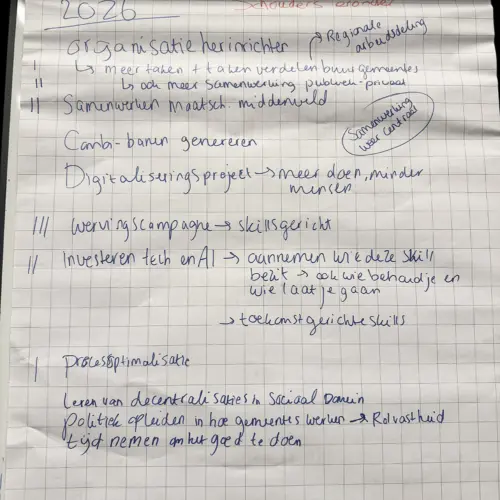 2026
Schouders
Organisatie herinrichter
Regionale
arbeidsdeling
I
↳ meer taken + taken verdelen buurgemeentes
II
↳ ook meer samenwerking publiek-privaat
II Samenwerken maatsch. middenveld
Samenwerking
weer centraal
Combi-banen genereren
Digitaliseringsproject → meer doen, minder
mensen
III Wervingscampagne → skillsgericht
II Investeren tech en AI → aannemen wie deze skill
bezit → ook wie behoud je en
wie laat je gaan
→ toekomstgerichte skills
I Procesoptimalisatie
Leren van decentralisaties in Sociaal Domein
Politiek opleiden in hoe gemeentes werken → Rolvastheid
tijd nemen om het goed te doen